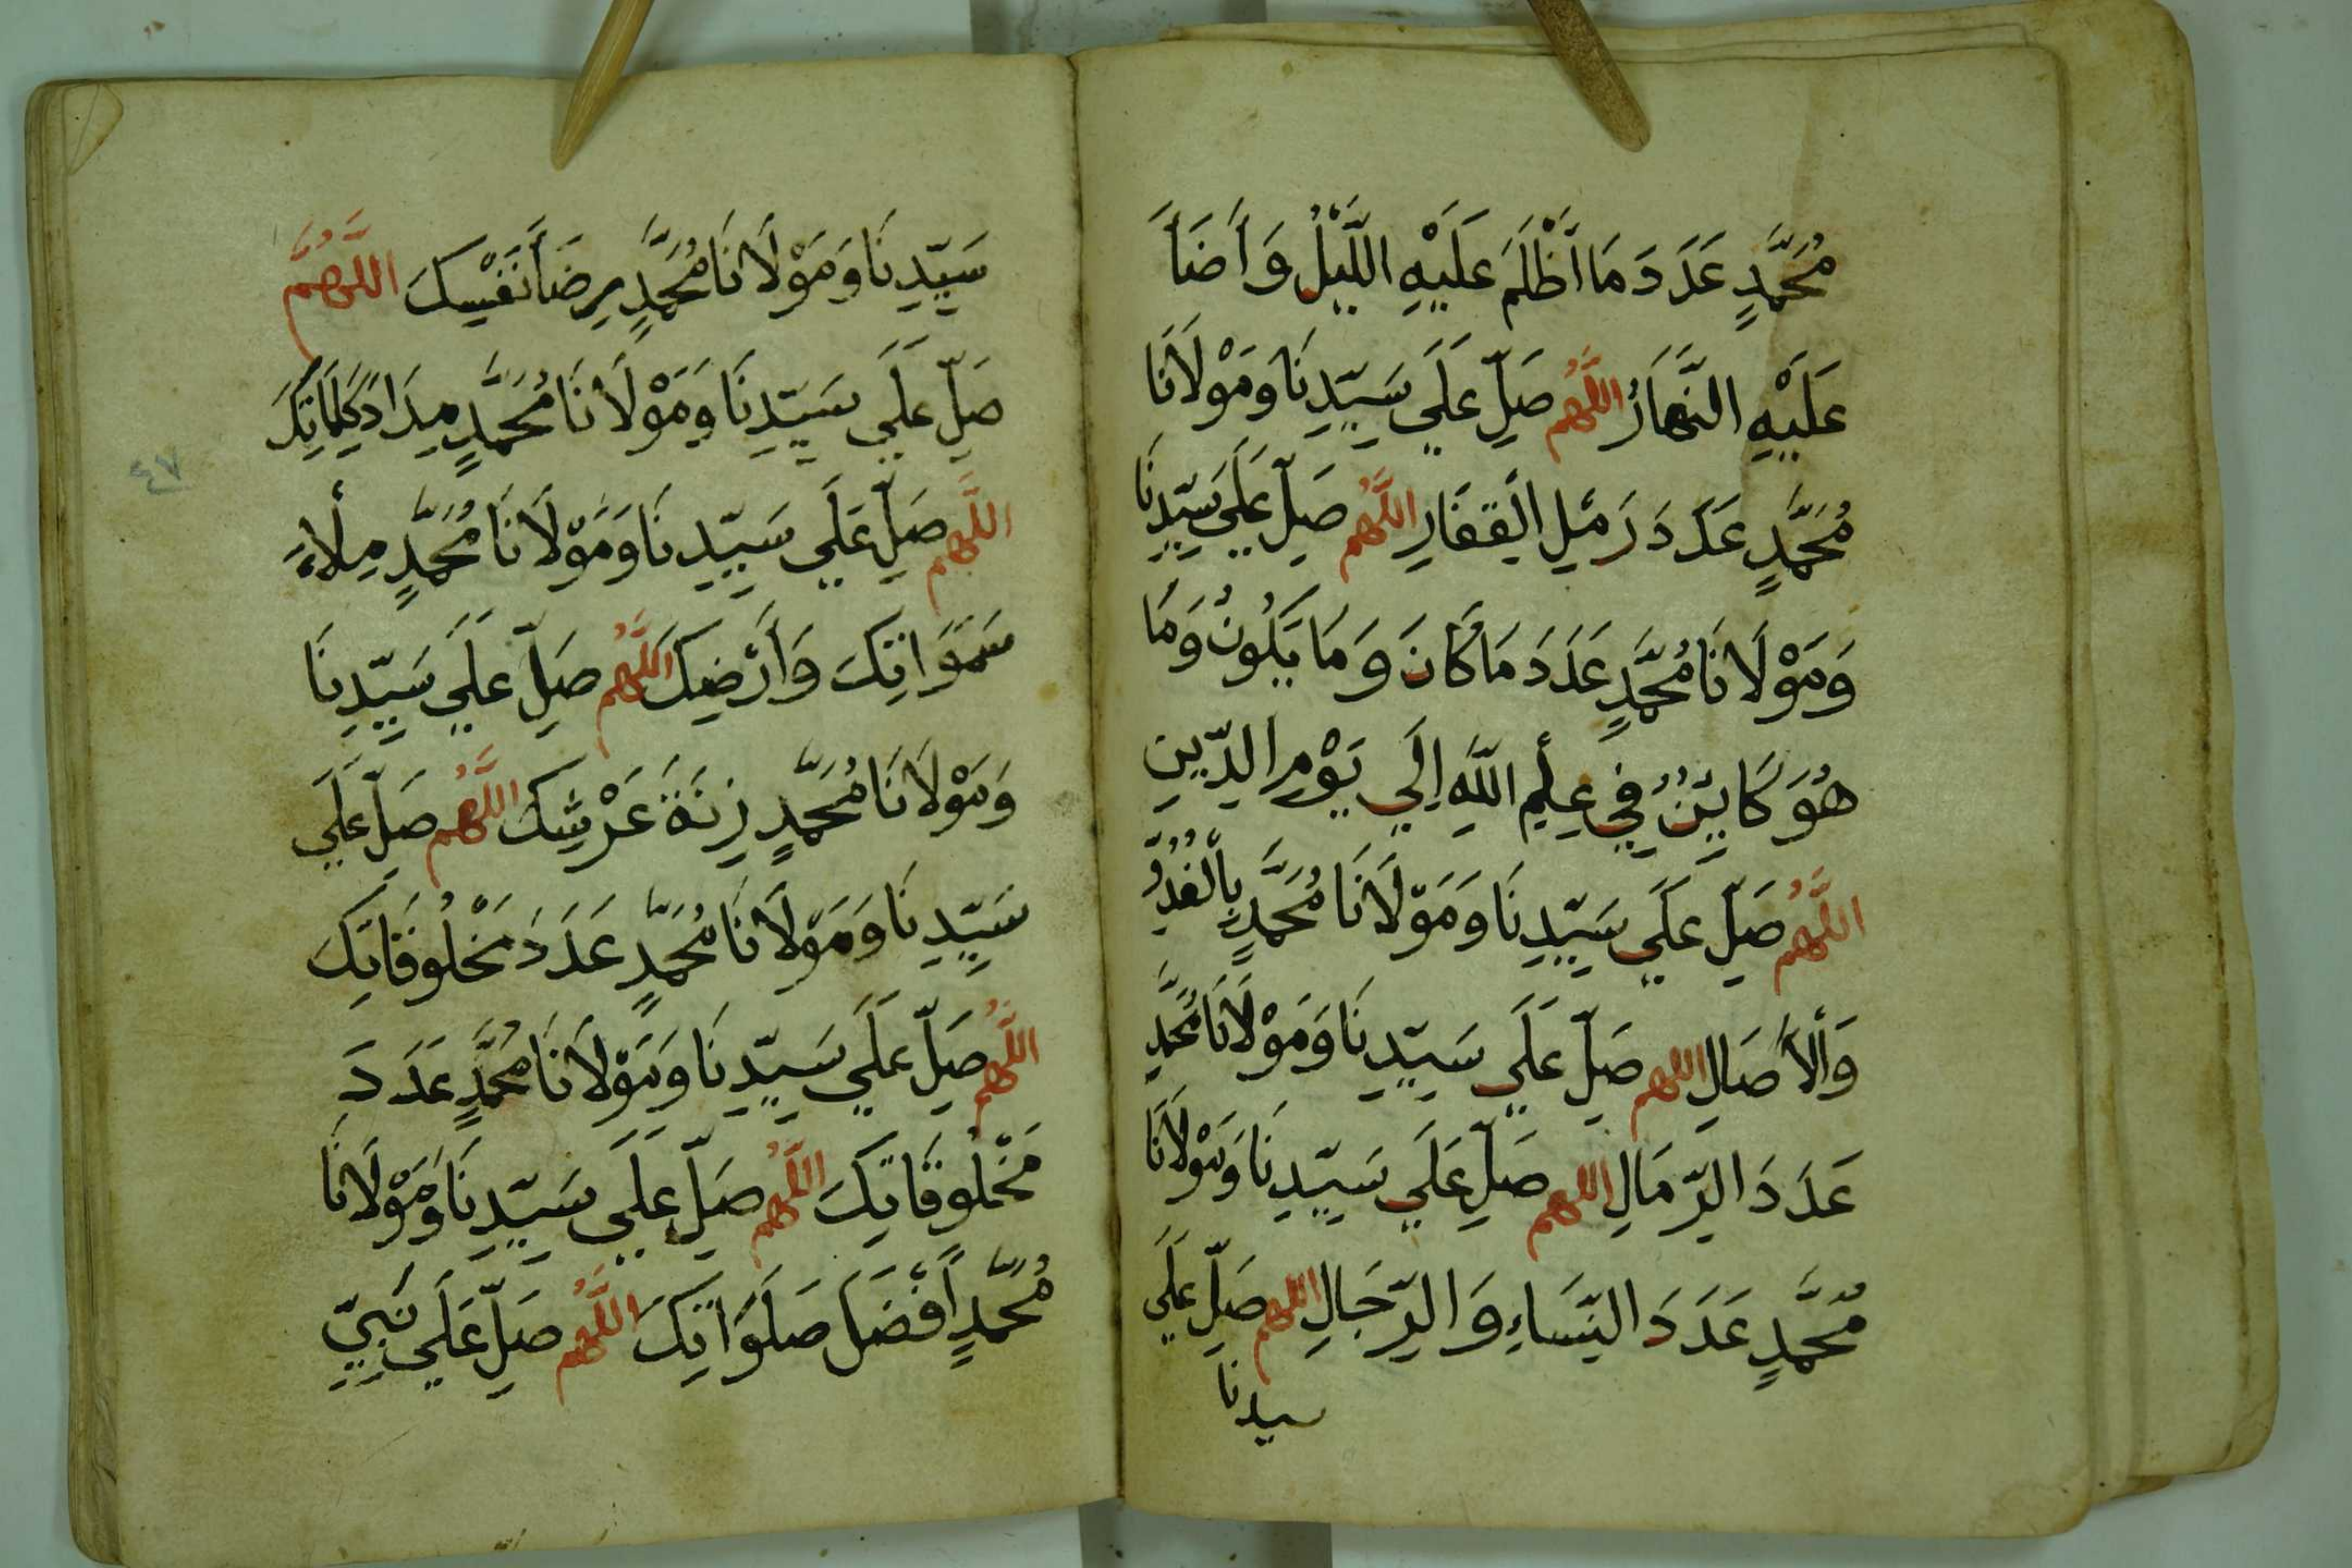 مُحَمَّدٍ عَدَدَ مَا اَظْلَمَ عَلَيْهِ اللَّيْلُ وَاَضَاَ
عَلَيْهِ النَّهَارُ اللَّهُم صَلِّ عَلَي سَيِّدِنَا وَمَوْلَانَا
مُحَمَّدٍ عَدَدَ رَمْلِ الْقِفَارِ اللَّهُم صَلِّ عَلَي سَيِّدِنَا
وَمَوْلَانَا مُحَمَّدٍ عَدَدَ مَا كَانَ وَمَا يَكُونُ وَمَا
هُوَ كَايِنٌ فِي عِلْمِ اللَّهِ اِلَي يَوْمِ الدِّينِ
اللَّهُم صَلِّ عَلَي سَيِّدِنَا وَمَوْلَانَا مُحَمَّدٍ بِالْغُدُوِّ
وَالْاَصَالِ اللهم صَلِّ عَلَي سَيِّدِنَا وَمَوْلَانَا مُحَمَّدٍ
عَدَدَ الرِّمَالِ اللهم صَلِّ عَلَي سَيِّدِنَا وَمَوْلَانَا
مُحَمَّدٍ عَدَدَ النِّسَاءِ وَالرِّجَالِ اللهم صَلِّ عَلَي
سيدنا
سَيِّدِنَا وَمَوْلَانَا مُحَمَّدٍ رِضَاَ نَفْسِكَ اللَّهُمَّ
صَلِّ عَلَي سَيِّدِنَا وَمَوْلَانَا مُحَمَّدٍ مِدَادَ كَلِمَاتِكَ
اللَّهم صَلِّ عَلَي سَيِّدِنَا وَمَوْلَانَا مُحَمَّدٍ مِلْاءَ
سَمَوَاتِكَ وَأَرْضِكَ اللَّهُم صَلِّ عَلَي سَيِّدِنَا
وَمَوْلَانَا مُحَمَّدٍ زِنَةَ عَرْشِكَ اللَّهُم صَلِّ عَلَي
سَيِّدِنَا وَمَوْلَانَا مُحَمَّدٍ عَدَدَ مَخْلُوقَاتِكَ
اللَّهُم صَلِّ عَلَي سَيِّدِنَا وَمَوْلَانَا مُحَمَّدٍ عَدَدَ
مَخْلُوقَاتِكَ اللَّهُم صَلِّ عَلَي سَيِّدِنَا وَمَوْلَانَا
مُحَمَّدٍ اَفْضَلَ صَلَوَاتِكَ اللَّهُم صَلِّ عَلَي نَبِيِّ
٤٧